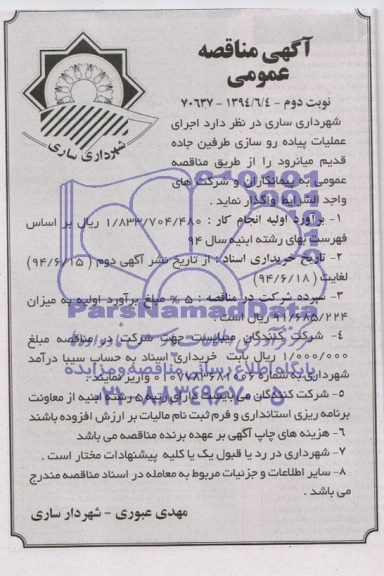 آگهی مناقصه
عمومی
نوبت دوم - ۱۳۹۴/۶/۴ - ۷۰۶۳۷
شهرداری ساری
شهرداری ساری در نظر دارد اجرای
عملیات پیاده رو سازی طرفین جاده
قدیم میانرود را از طریق مناقصه
عمومی به پیمانکاران و شرکت های
واجد الشرایط واگذار نماید .
۱- برآورد اولیه انجام کار : ۱/۸۳۳/۷۰۴/۴۸۰ ریال بر اساس
فهرست بهای رشته ابنیه سال ۹۴
۲- تاریخ خریداری اسناد : از تاریخ نشر آگهی دوم ( ۹۴/۶/۱۵)
لغایت ( ۹۴/۶/۱۸)
۳- سپرده شرکت در مناقصه : ۵ % مبلغ برآورد اولیه به میزان
۹۱/۶۸۵/۲۲۴ ریال است .
ParsNamadData
۴- شرکت کنندگان میبایست جهت شرکت در مناقصه مبلغ
۱/۰۰۰/۰۰۰ ریال بابت خریداری اسناد به حساب سیبا درآمد
شهرداری به شماره واریز نمایند .
پایگاه اطلاع رسانی مناقصه و مزایده
۵- شرکت کنندگان می بایست دارای رتبه ۵ رشته ابنیه از معاونت
۰۲۱-۸۸۳۴۹۶۷۰-۵
برنامه ریزی استانداری و فرم ثبت نام مالیات بر ارزش افزوده باشند
۶- هزینه های چاپ آگهی بر عهده برنده مناقصه می باشد
۷- شهرداری در رد یا قبول یک یا کلیه پیشنهادات مختار است .
۸- سایر اطلاعات و جزئیات مربوط به معامله در اسناد مناقصه مندرج
می باشد .
مهدی عبوری - شهردار ساری